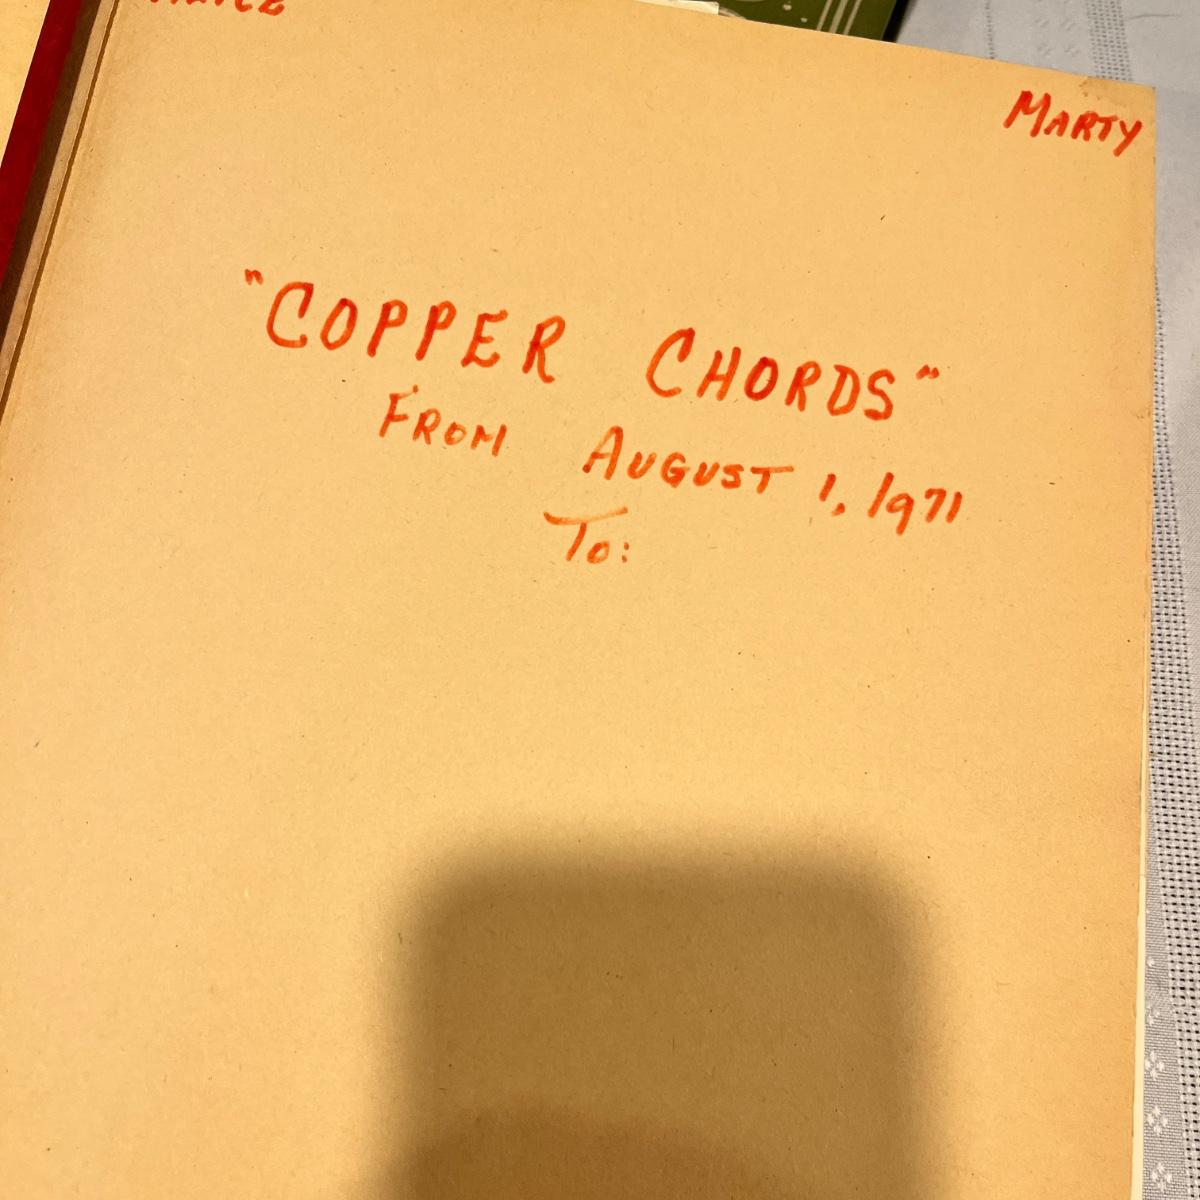 MARTY
"COPPER CHORDS"
FROM AUGUST 1, 1971
To: